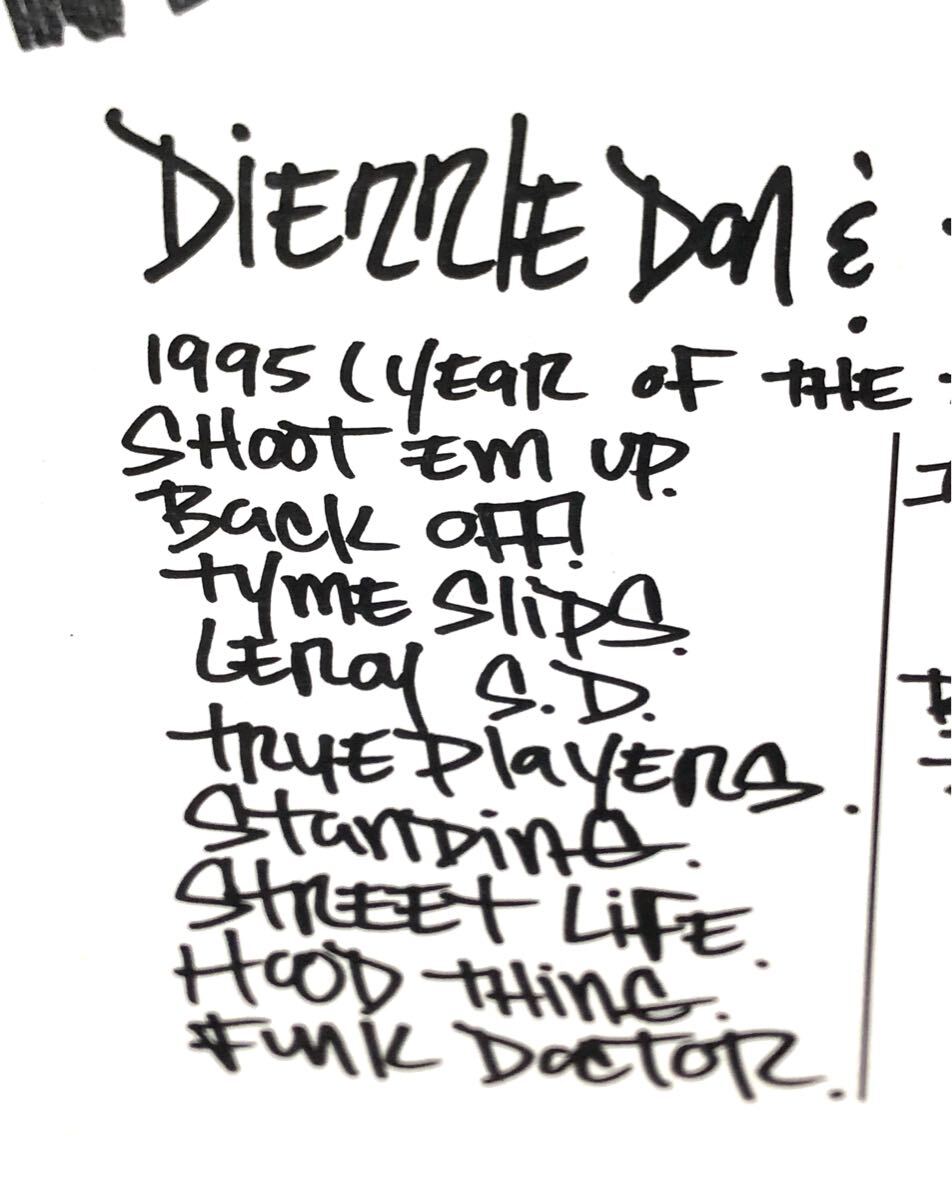 DiEZZLE Don &
1995 (YEAR OF THE
SHOOT EM UP.
BACK OFF!
TYME SLIPS.
LEROY S.D.
TRUE PLAYERS.
STANDING.
STREET LIFE.
HOOD THING.
FUNK DOCTOR.